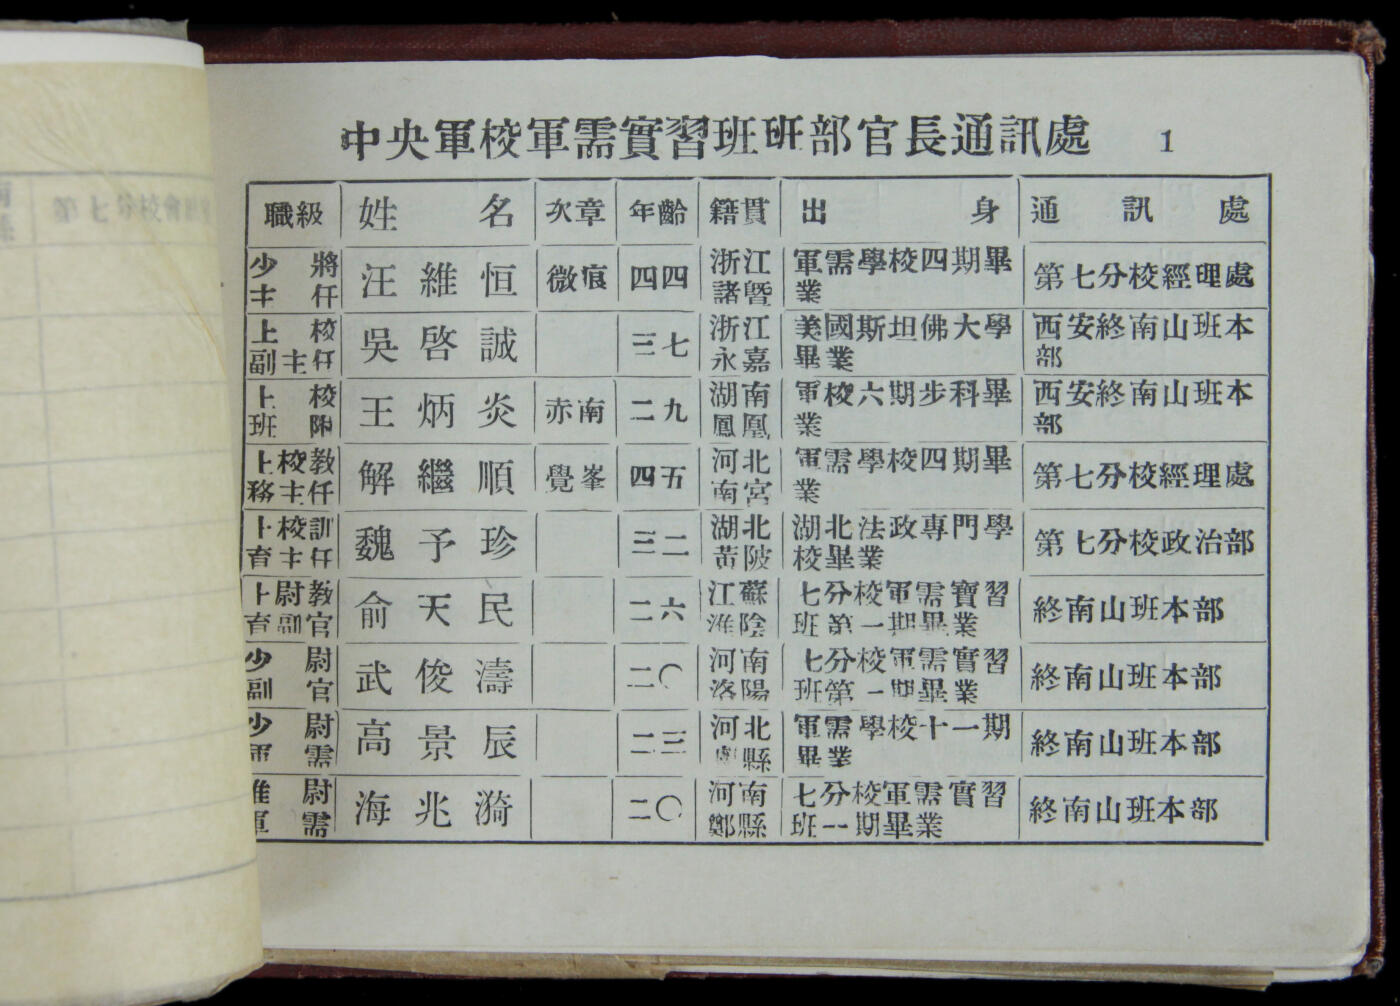 中央軍校軍需實習班班部官長通訊處 1
職級 姓名 次章 年齡 籍貫 出身 通訊處
少將主任 汪維恒 微痕 四四 浙江諸暨 軍需學校四期畢業 第七分校經理處
上校副主任 吳啓誠 三七 浙江永嘉 美國斯坦佛大學畢業 西安終南山班本部
上校班附 王炳炎 赤南 二九 湖南鳳凰 軍校六期步科畢業 西安終南山班本部
上校教務主任 解繼順 覺峯 四五 河北南宮 軍需學校四期畢業 第七分校經理處
上校訓育主任 魏予珍 三二 湖北黃陂 湖北法政專門學校畢業 第七分校政治部
上尉教育副官 俞天民 二六 江蘇淮陰 七分校軍需實習班第一期畢業 終南山班本部
少尉副官 武俊濤 二〇 河南洛陽 七分校軍需實習班第一期畢業 終南山班本部
少尉軍需 高景辰 二三 河北縣 軍需學校十一期畢業 終南山班本部
准尉軍需 海兆漪 二〇 河南鄭縣 七分校軍需實習班一期畢業 終南山班本部
第七分校會